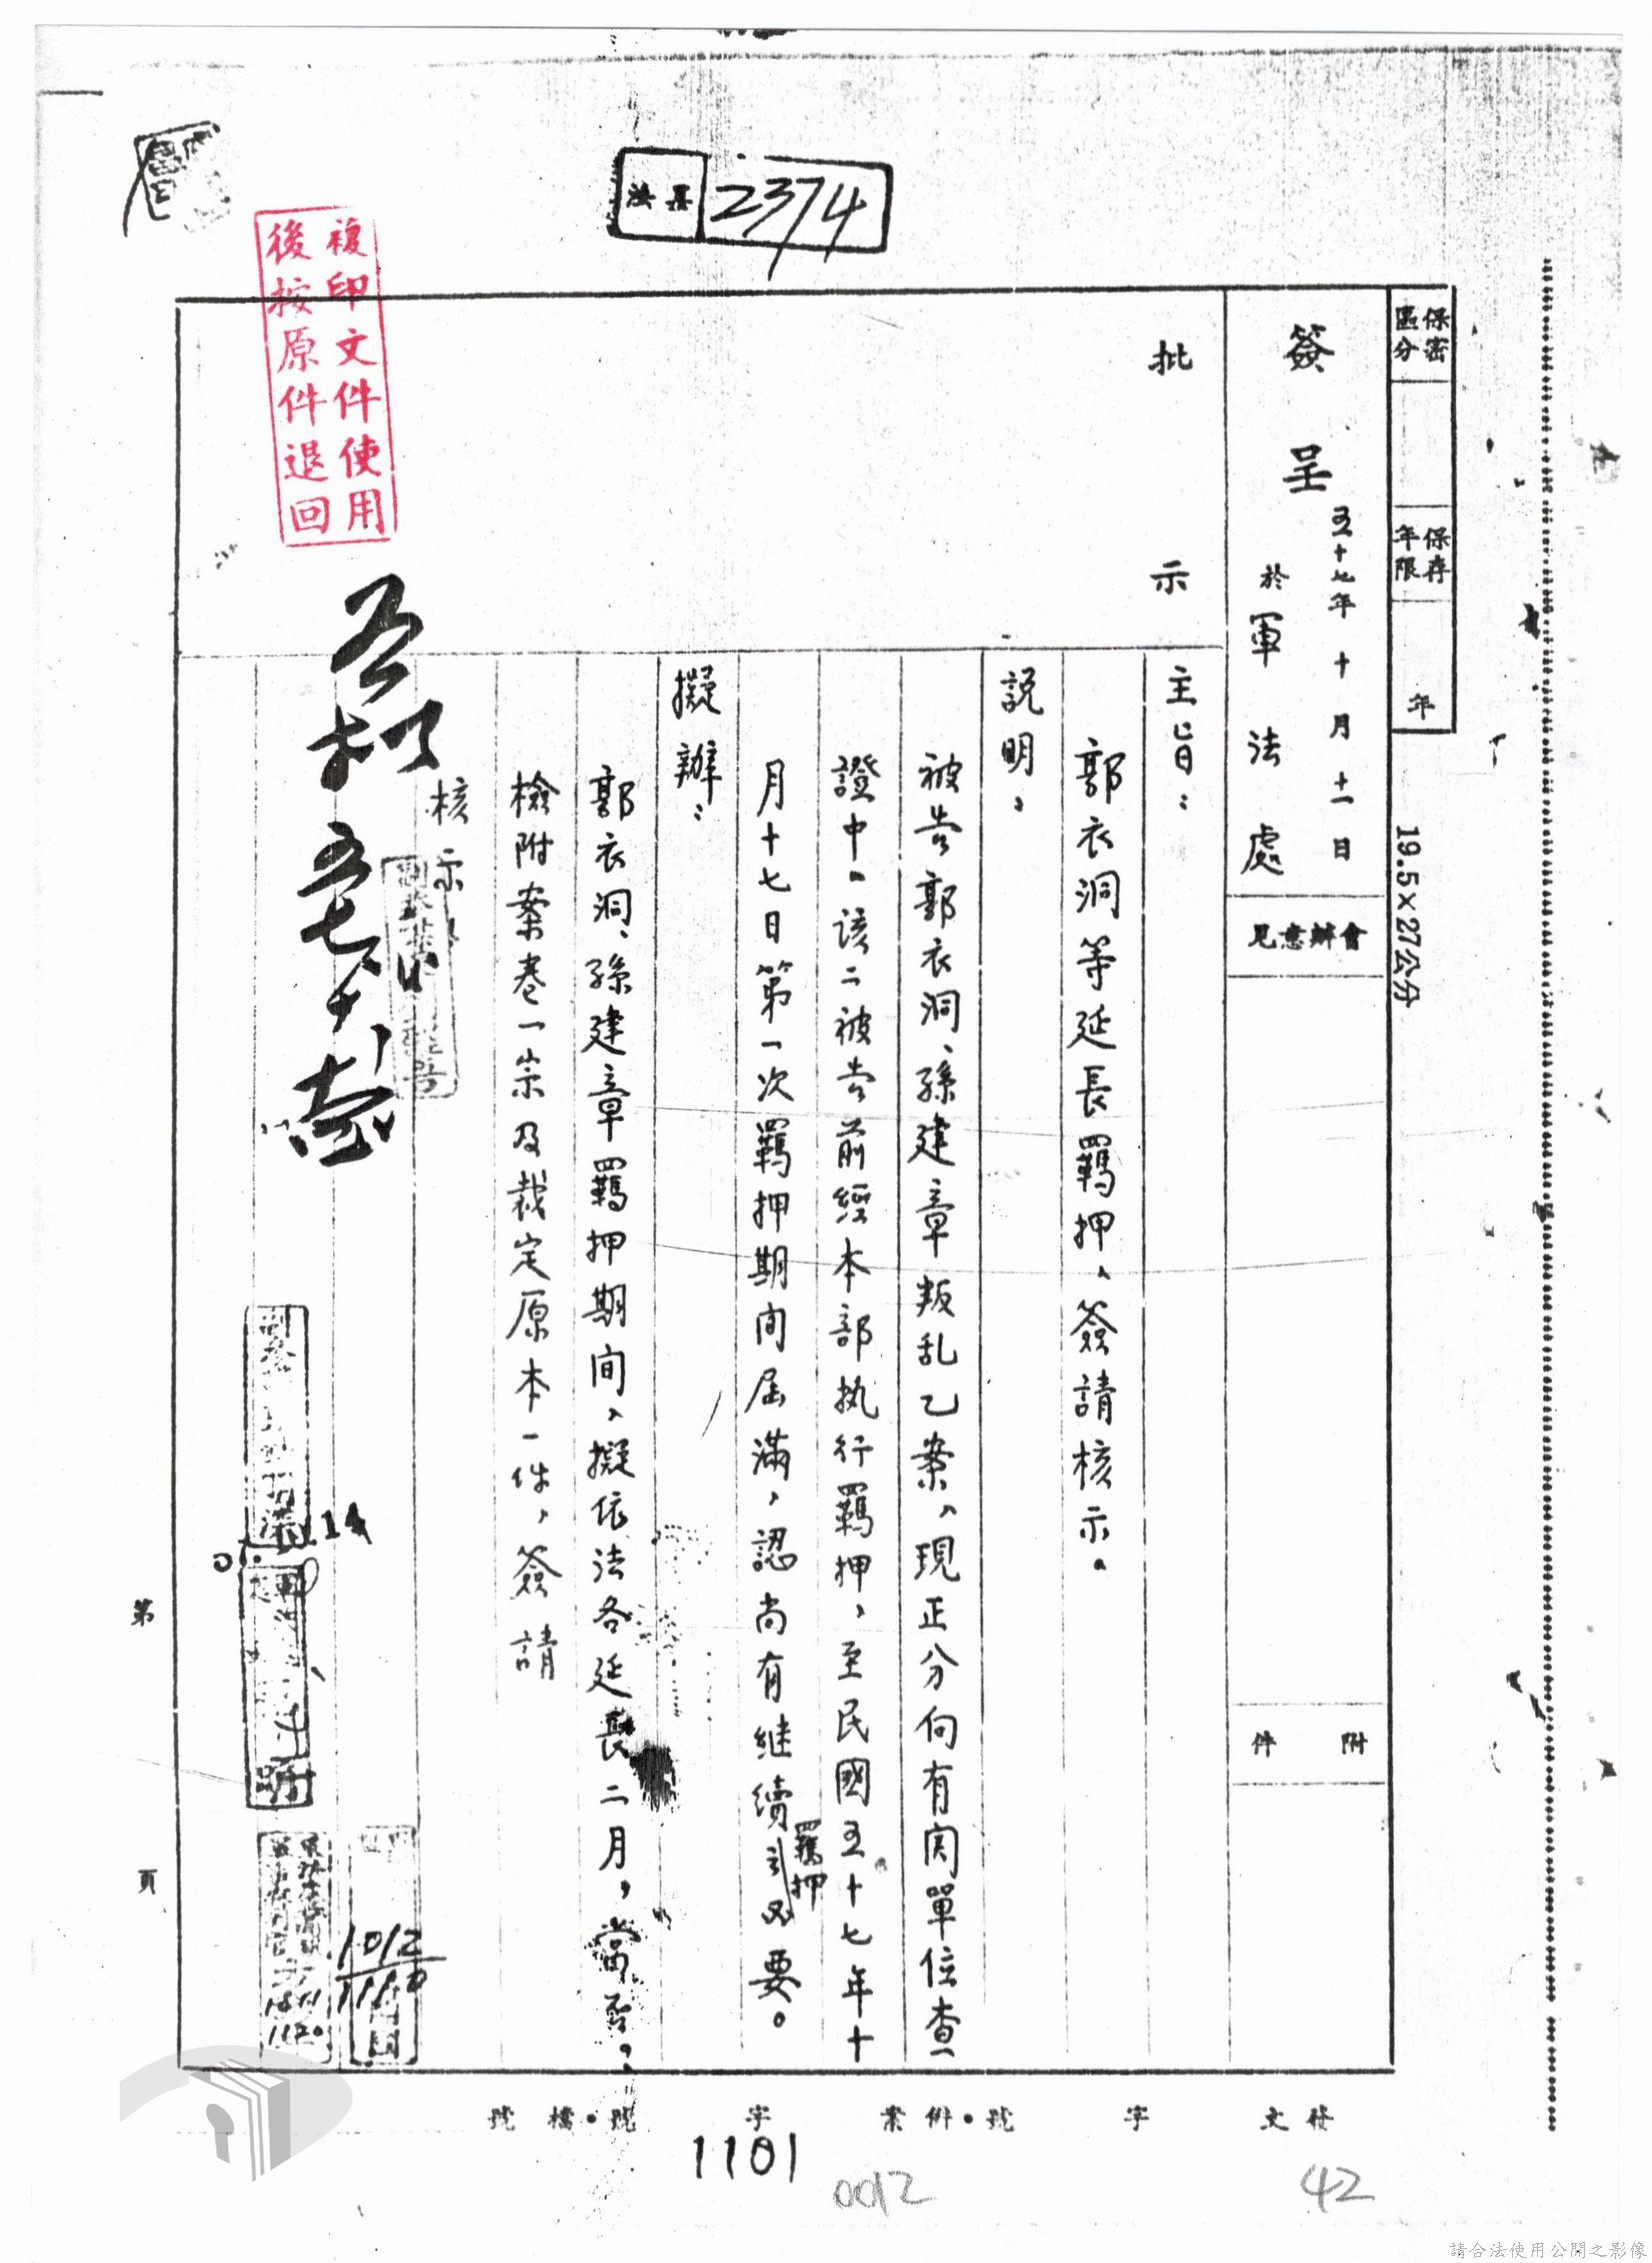 法展
2374
複印文件使用
後按原件退回
保密
區分
保存
年限
年
19.5×27公分
簽呈
五十七年十月十一日
於軍法處
會辦意見
附件
批示
主旨：
郭衣洞等延長羈押、簽請核示。
說明、
被告郭衣洞、孫建章叛乱乙案、現正分向有関單位查
證中。該二被告前經本部执行羈押，至民國五十七年十
月十七日第一次羈押期间屆滿，認尚有継續羈押必要。
擬辦：
郭衣洞、孫建章羈押期间、擬依法各延長二月，當否，
檢附案卷一宗及裁定原本一件，簽請
核示
14
1012
1110
1120
第
頁
發文
字
號·併案
字
號·檔號
1101
0012
42
請合法使用公開之影像